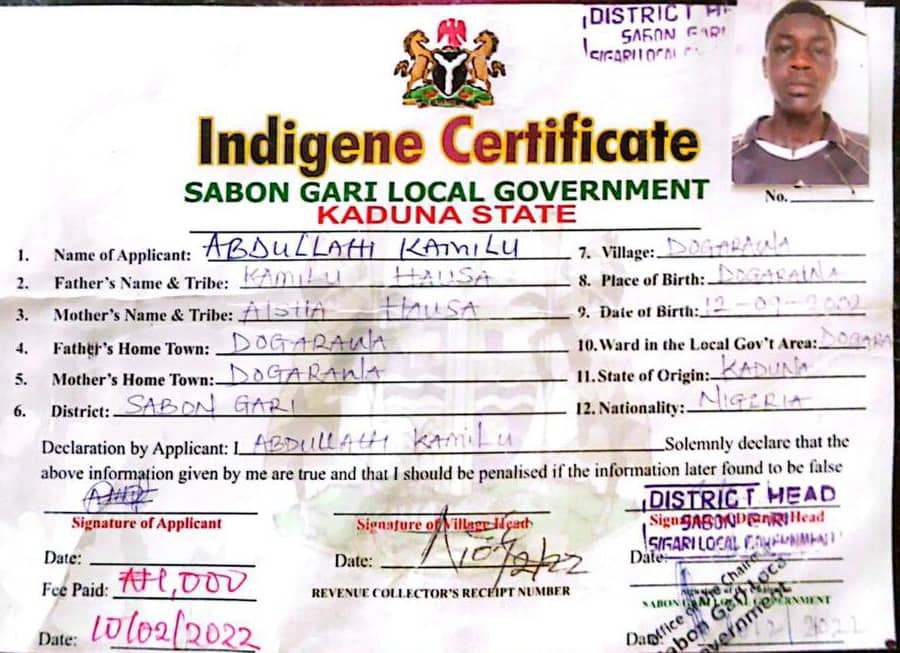 DISTRICT H
SABON GARI
S/GARI LOCAL G
Indigene Certificate
SABON GARI LOCAL GOVERNMENT
KADUNA STATE
No.
1. Name of Applicant: ABDULLAHI KAMILU
2. Father's Name & Tribe: KAMILU HAUSA
3. Mother's Name & Tribe: AISHA HAUSA
4. Father's Home Town: DOGARAWA
5. Mother's Home Town: DOGARAWA
6. District: SABON GARI
7. Village: DOGARAWA
8. Place of Birth: DOGARAWA
9. Date of Birth: 12-09-2002
10. Ward in the Local Gov't Area: DOGARA
11. State of Origin: KADUNA
12. Nationality: NIGERIA
Declaration by Applicant: I ABDULLAHI KAMILU Solemnly declare that the
above information given by me are true and that I should be penalised if the information later found to be false
Signature of Applicant
Date:
Fee Paid: ₦1,000
Date: 10/02/2022
Signature of Village Head
Date: 10/2/22
REVENUE COLLECTOR'S RECEIPT NUMBER
DISTRICT HEAD
SABON GARI
S/GARI LOCAL GOVERNMENT
Signature of District Head
Date:
Office of the Chairman
Sabon Gari Local
Government
SABON GARI LOCAL GOVERNMENT
Date: 2022